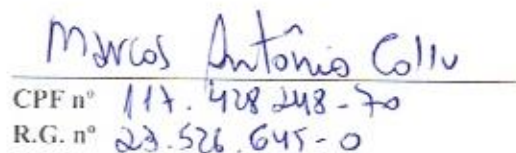 Marcos Antônio Collu
CPF nº 117.428 248-70
R.G. nº 23.526.645-0